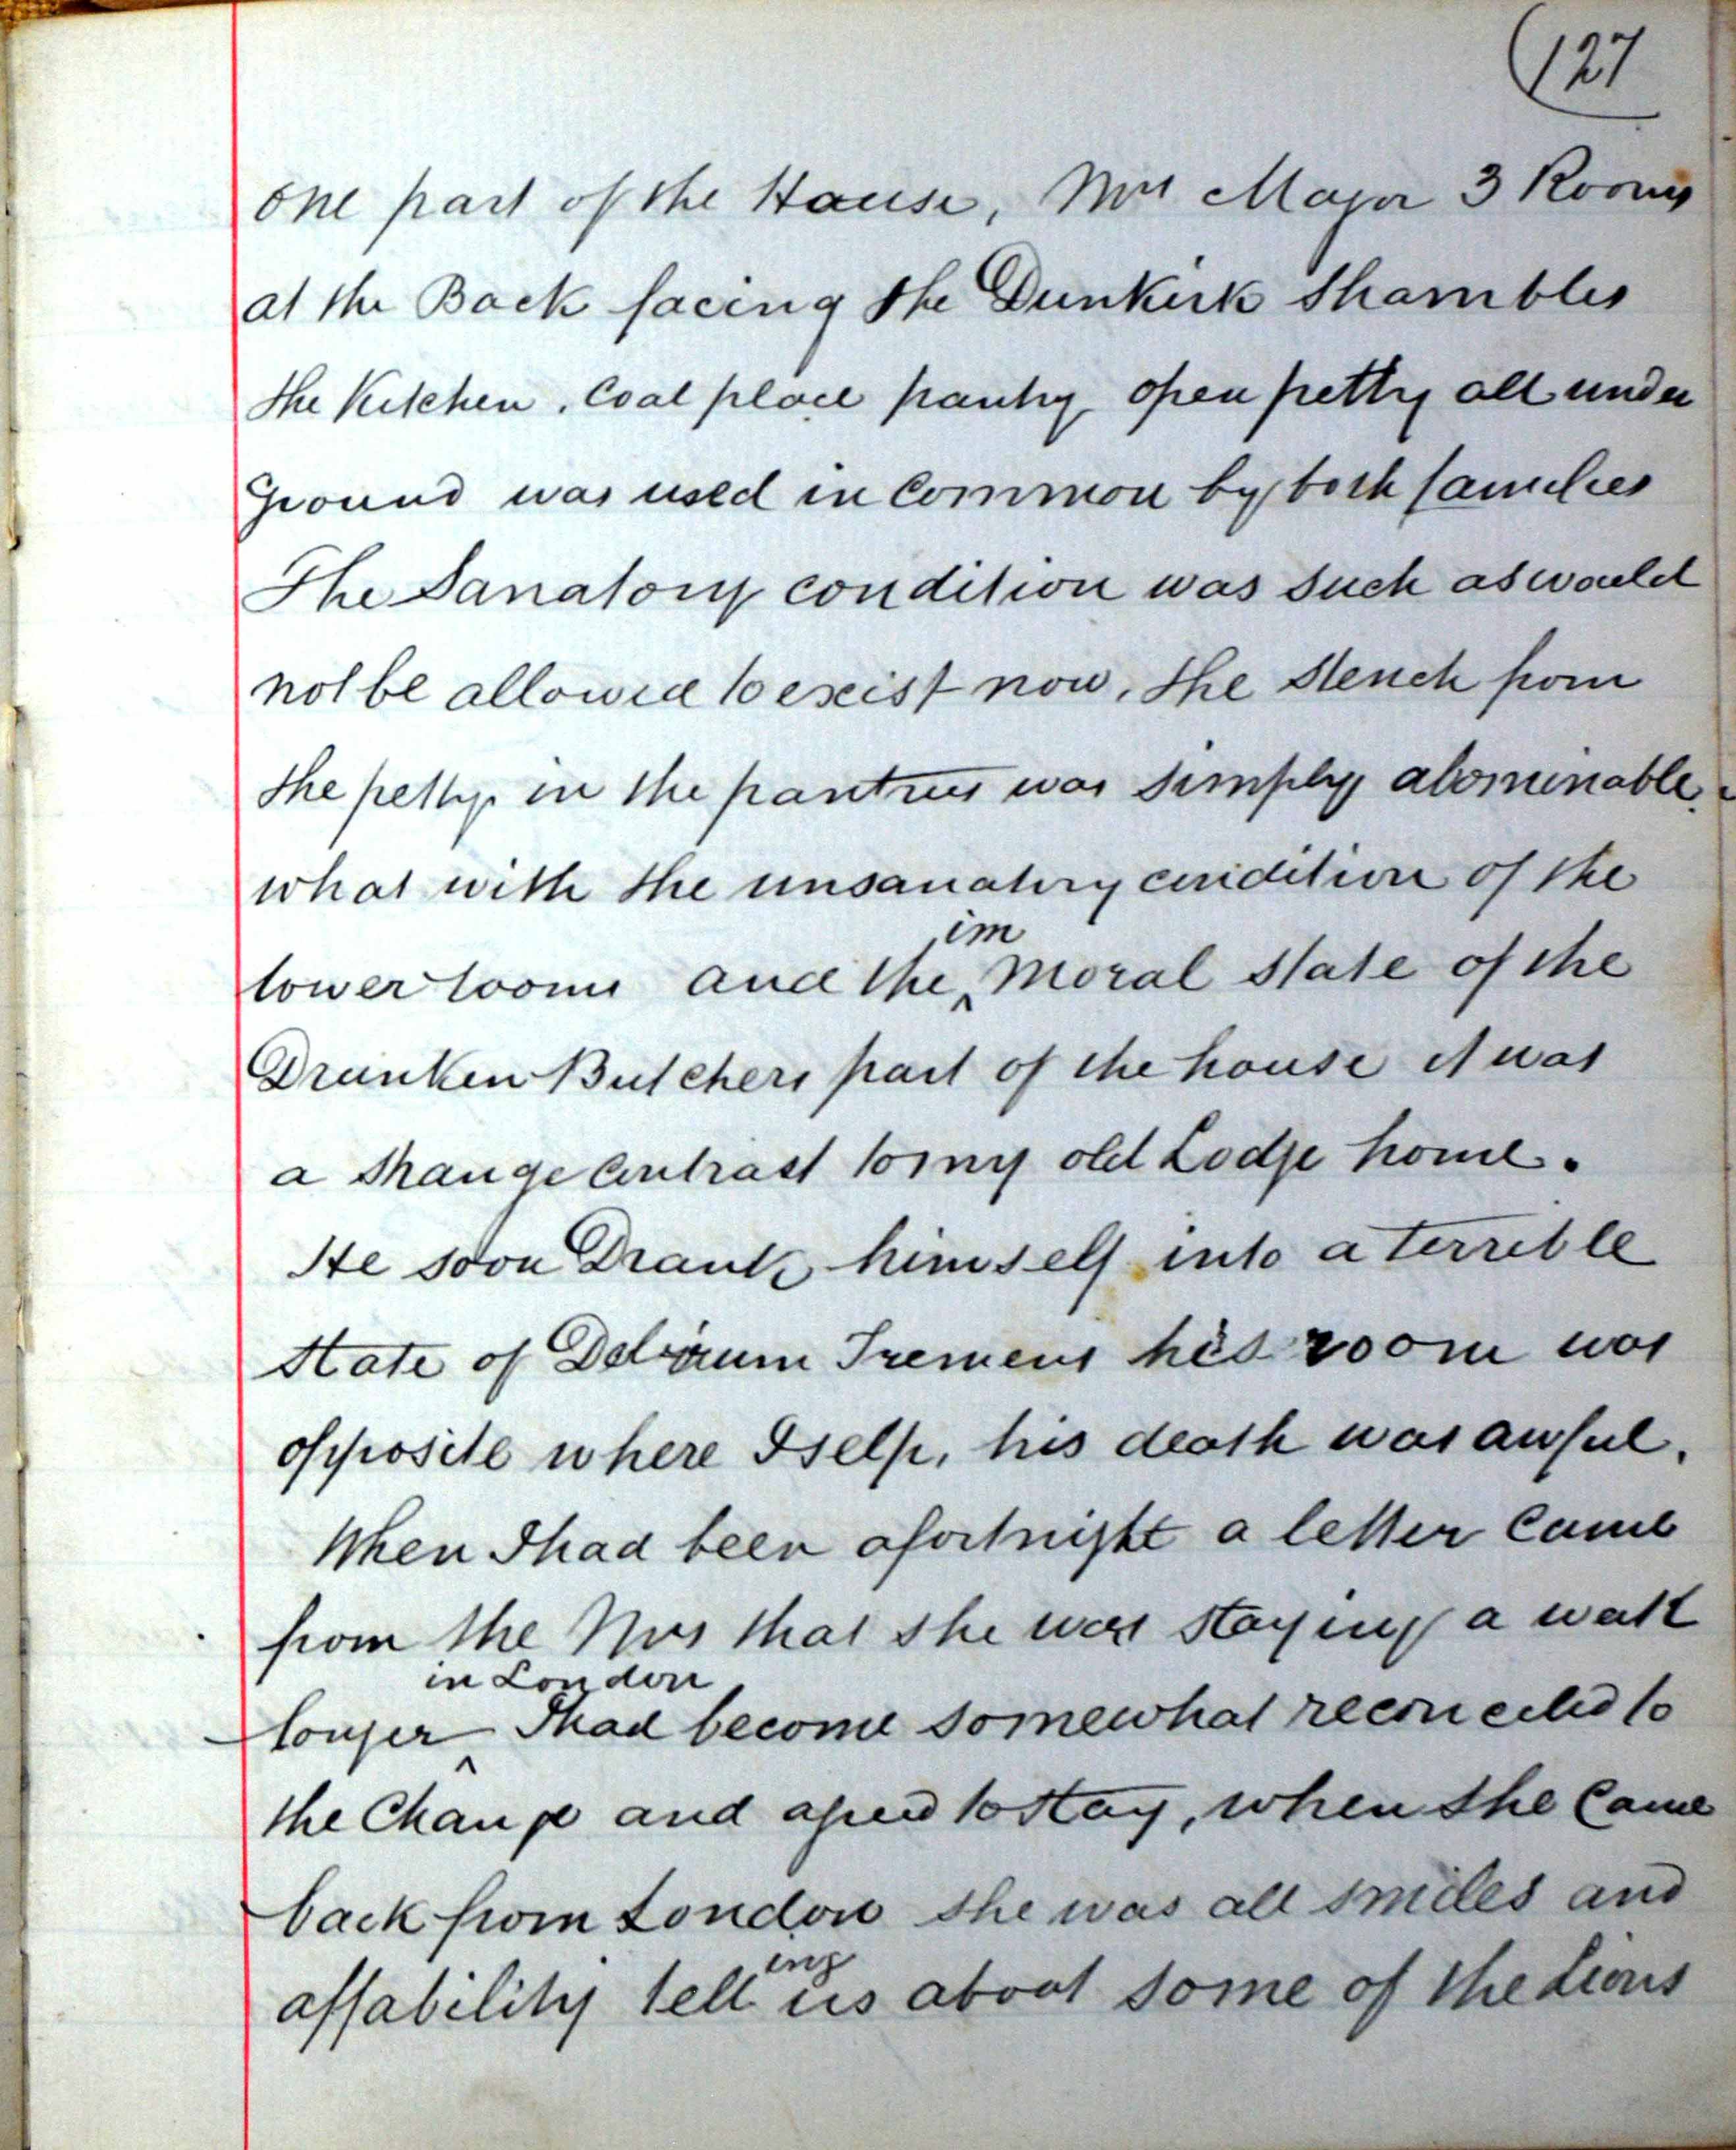 (127
one part of the House, Mrs Major 3 Rooms
at the Back facing the Dunkirk Shambles
the Kitchen, Coal place pantry open petty all under
ground was used in Common by both families
The Sanatory condition was such as would
not be allowed to exist now, the stench from
the petty in the pantries was simply abominable.
what with the unsanatory condition of the
im
lower rooms and the ^ moral state of the
Drunken Butchers part of the house it was
a strange Contrast to my old Lodge home.
He soon Drank himself into a terrible
state of Delirium Tremens his room was
opposite where I selp, his death was awful.
When I had been a fortnight a letter Came
from the Mrs that she was staying a week
in London
longer ^ I had become somewhat reconciled to
the Change and agreed to stay, when she Came
back from London she was all smiles and
ing
affability tell us about some of the Lions